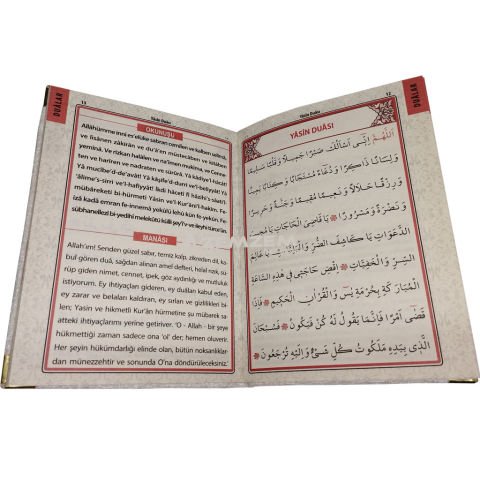 DUÂLAR
13
Yâsîn Duâsı
OKUNUŞU
Allâhümme innî es'elüke sabran cemîlen ve kalben selîmâ,
ve lisânen zâkirân ve du'âen müstecâben ve kitâben
yemînâ. Ve rizkan halâlen ve na'îmen mukîma, ve Cenne-
ten ve harîren ve nadraten ve sürûrâ. Yâ kâdiye'l-hâcât!
Yâ mucîbe'd-de'avât! Yâ kâşife'd-durri ve'l-beliyyât! Yâ
'âlime's-sirri ve'l-hafiyyât! İkdi hâcetî fî hâzihi's-sâati'l-
mübâreketi bi-hürmeti Yâsîn ve'l-Kur'âni'l-hakîm. Fe-
izâ kadâ emran fe-innemâ yekûlü lehû kün fe-yekûn. Fe-
sübhanellezî bi-yedihî melekûtü külli şey'iv-ve ileyhi türce'ûn.
MANÂSI
Allah'ım! Senden güzel sabır, temiz kalp, zikreden dil, ka-
bul gören duâ, sağdan alınan amel defteri, helal rızık, sü-
rüp giden nimet, cennet, ipek, göz aydınlığı ve mutluluk
istiyorum. Ey ihtiyaçları gideren, ey duâları kabul eden,
ey zarar ve belaları kaldıran, ey sırları ve gizlilikleri bi-
len; Yasin ve hikmetli Kur'ân hürmetine şu mübarek sa-
atteki ihtiyaçlarımı yerine getiriver. 'O - Allah - bir şeye
hükmettiği zaman sadece ona 'ol' der; hemen oluverir.
Her şeyin hükümdarlığı elinde olan, bütün noksanlıklar-
dan münezzehtir ve sonunda O'na döndürüleceksiniz.'
12
Yâsîn Duâsı
DUÂLAR
YÂSÎN DUÂSI
اَللّٰهُمَّ اِنّٖى اَسْاَلُكَ صَبْرًا جَمٖيلًا وَ قَلْبًا سَلٖيمًا
وَ لِسَانًا ذَاكِرًا وَ دُعَاءً مُسْتَجَابًا وَ كِتَابًا يَمٖينًا
وَ رِزْقًا حَلَالًا وَ نَعٖيمًا مُقٖيمًا وَ جَنَّةً وَ حَرٖيرًا
وَ نَضْرَةً وَ سُرُورًا يَا قَاضِىَ الْحَاجَاتِ يَا مُجٖيبَ
الدَّعَوَاتِ يَا كَاشِفَ الضُّرِّ وَ الْبَلِيَّاتِ يَا عَالِمَ
السِّرِّ وَ الْخَفِيَّاتِ اِقْضِ حَاجَتٖى فٖى هٰذِهِ السَّاعَةِ
الْمُبَارَكَةِ بِحُرْمَةِ يٰسٓ وَ الْقُرْاٰنِ الْحَكٖيمِ فَاِذَا
قَضٰى اَمْرًا فَاِنَّمَا يَقُولُ لَهُ كُنْ فَيَكُونُ فَسُبْحَانَ
الَّذٖى بِيَدِهٖ مَلَكُوتُ كُلِّ شَىْءٍ وَ اِلَيْهِ تُرْجَعُونَ